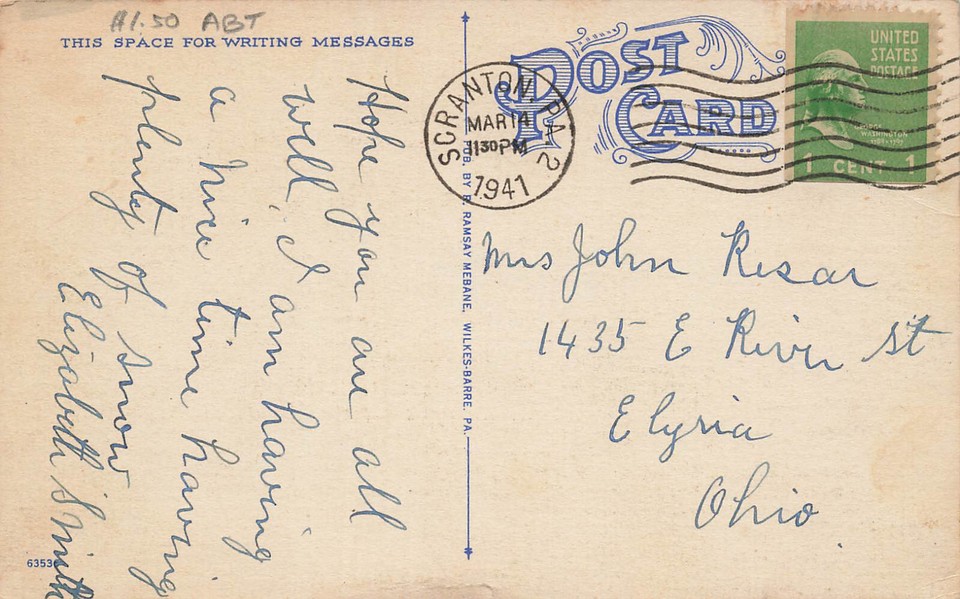 A1.50 ABT
THIS SPACE FOR WRITING MESSAGES
Hope you are all
well, I am having
a Nice time having
plenty of snow
Elizabeth Smith
6353
PUB. BY R. RAMSAY MEBANE, WILKES-BARRE, PA.
POST CARD
SCRANTON, PA. 2
MAR 14
1130 PM
1941
UNITED
STATES
POSTAGE
GEORGE
WASHINGTON
1 CENT 1
Mrs John Resar
1435 E River St
Elyria
Ohio